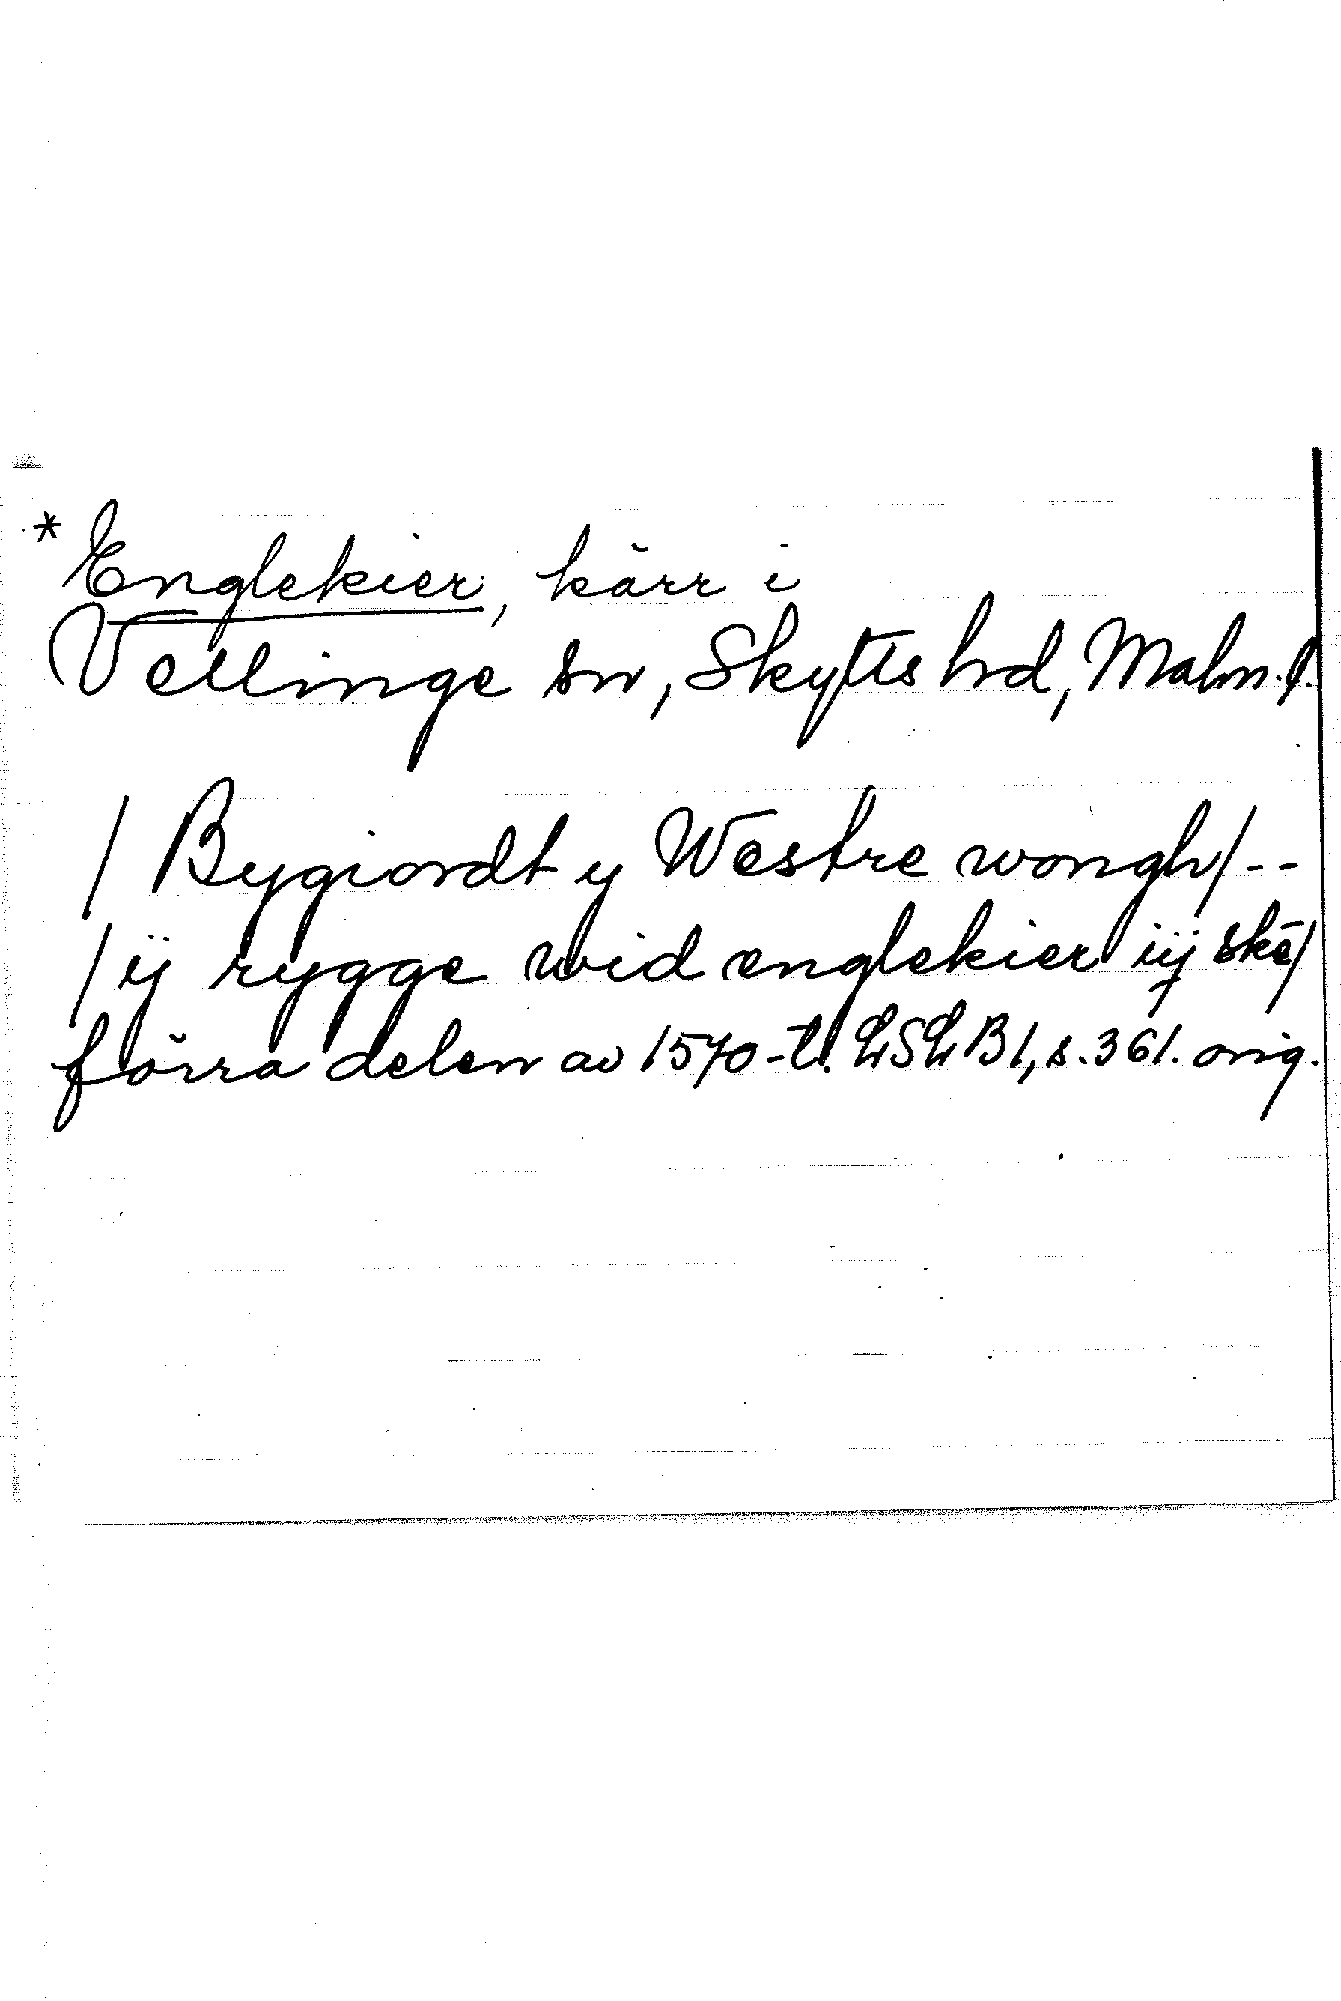 * Englekier, kärr i
Vellinge sn, Skytts hd, Malm. l.
/ Bygiordt y Westre wongh / --
/ ij rygge wid englekier iij skē /
förra delen av 1570-t. LSLB 1, s. 361. orig.